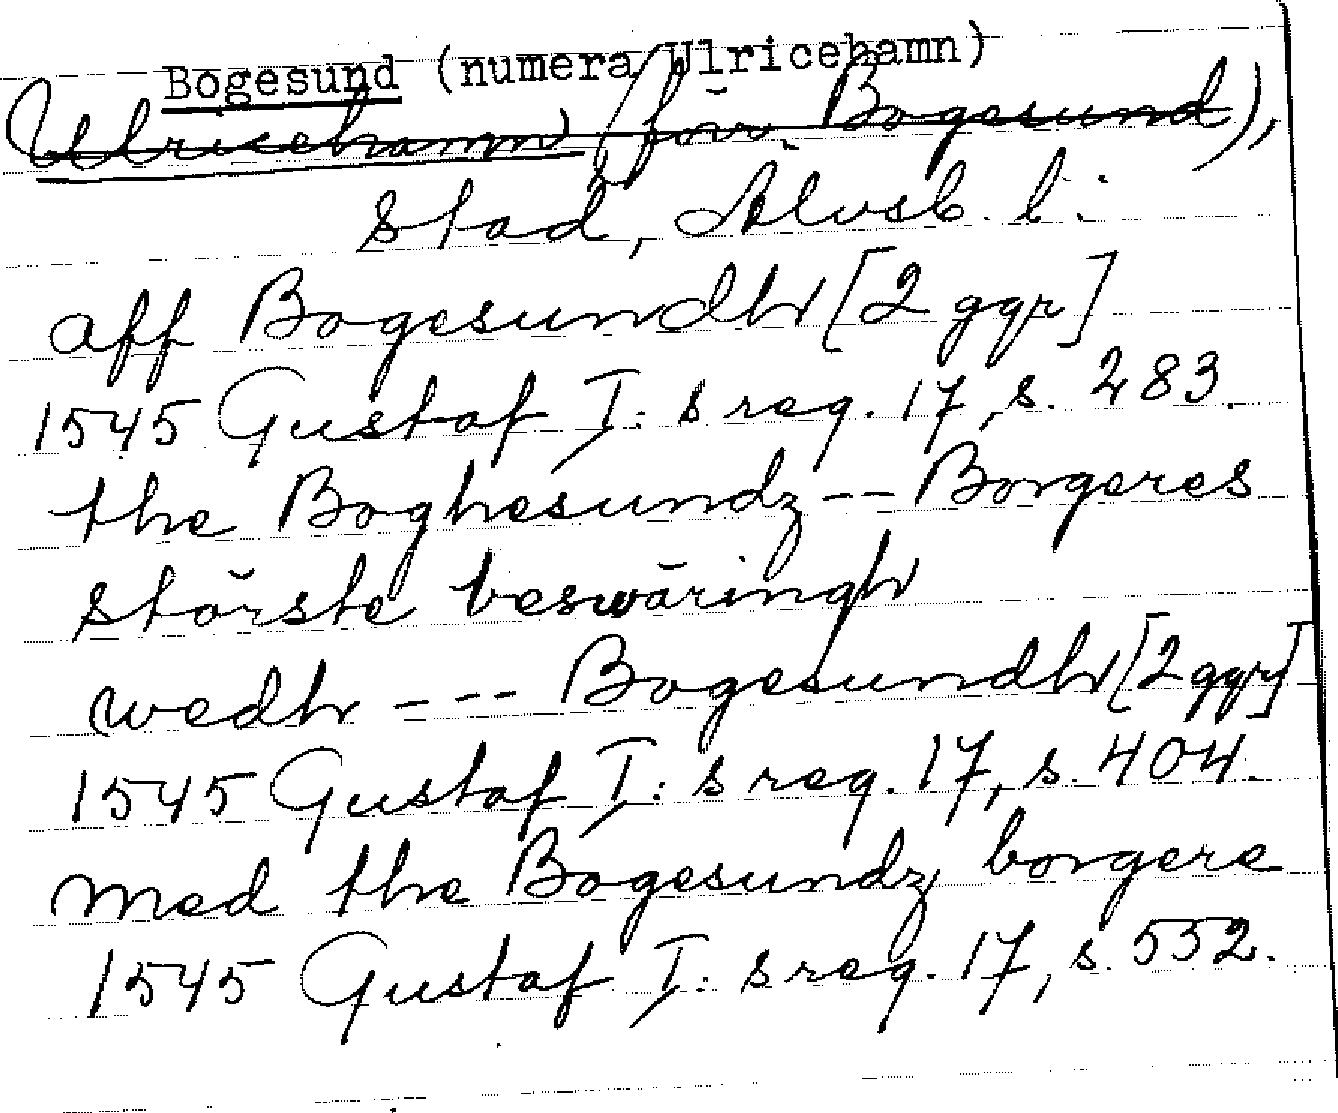 Bogesund (numera Ulricehamn)
Ulricehamn (förr. Bogesund),
stad, Älvsb. l.
aff Bogesundh [2 ggr]
1545 Gustaf I: s reg. 17, s. 283.
the Boghesundz -- Borgeres
störste beswäringh
wedh --- Bogesundh [2 ggr]
1545 Gustaf I: s reg. 17, s. 404.
med the Bogesundz borgere
1545 Gustaf I: s reg. 17, s. 552.